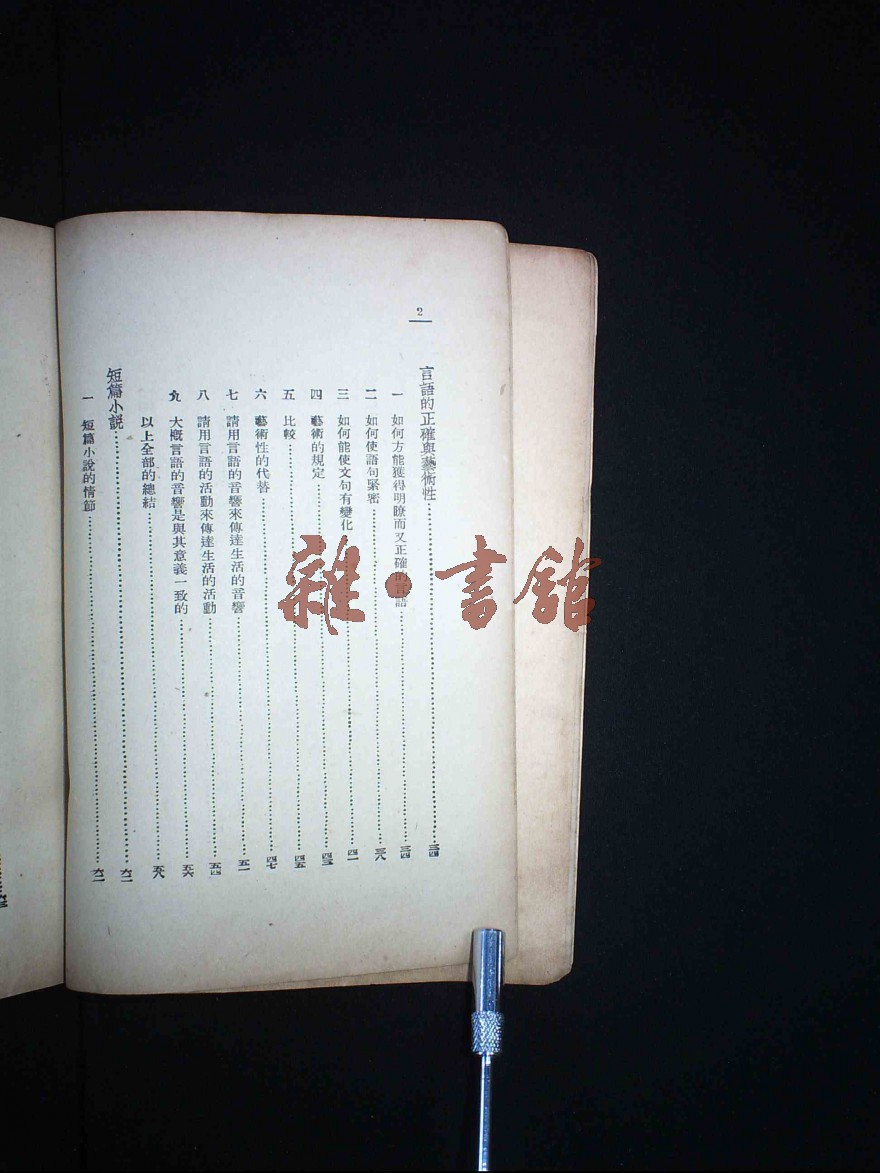 2
言語的正確與藝術性……三四
一 如何方能獲得明瞭而又正確的言語……三四
二 如何使語句緊密……三八
三 如何能使文句有變化……四一
四 藝術的規定……四三
五 比較……四五
六 藝術性的代替……四七
七 請用言語的音響來傳達生活的音響……五一
八 請用言語的活動來傳達生活的活動……五四
九 大概言語的音響是與其意義一致的……五六
以上全部的總結……五八
短篇小說……六二
一 短篇小說的情節……六二
雜·書館